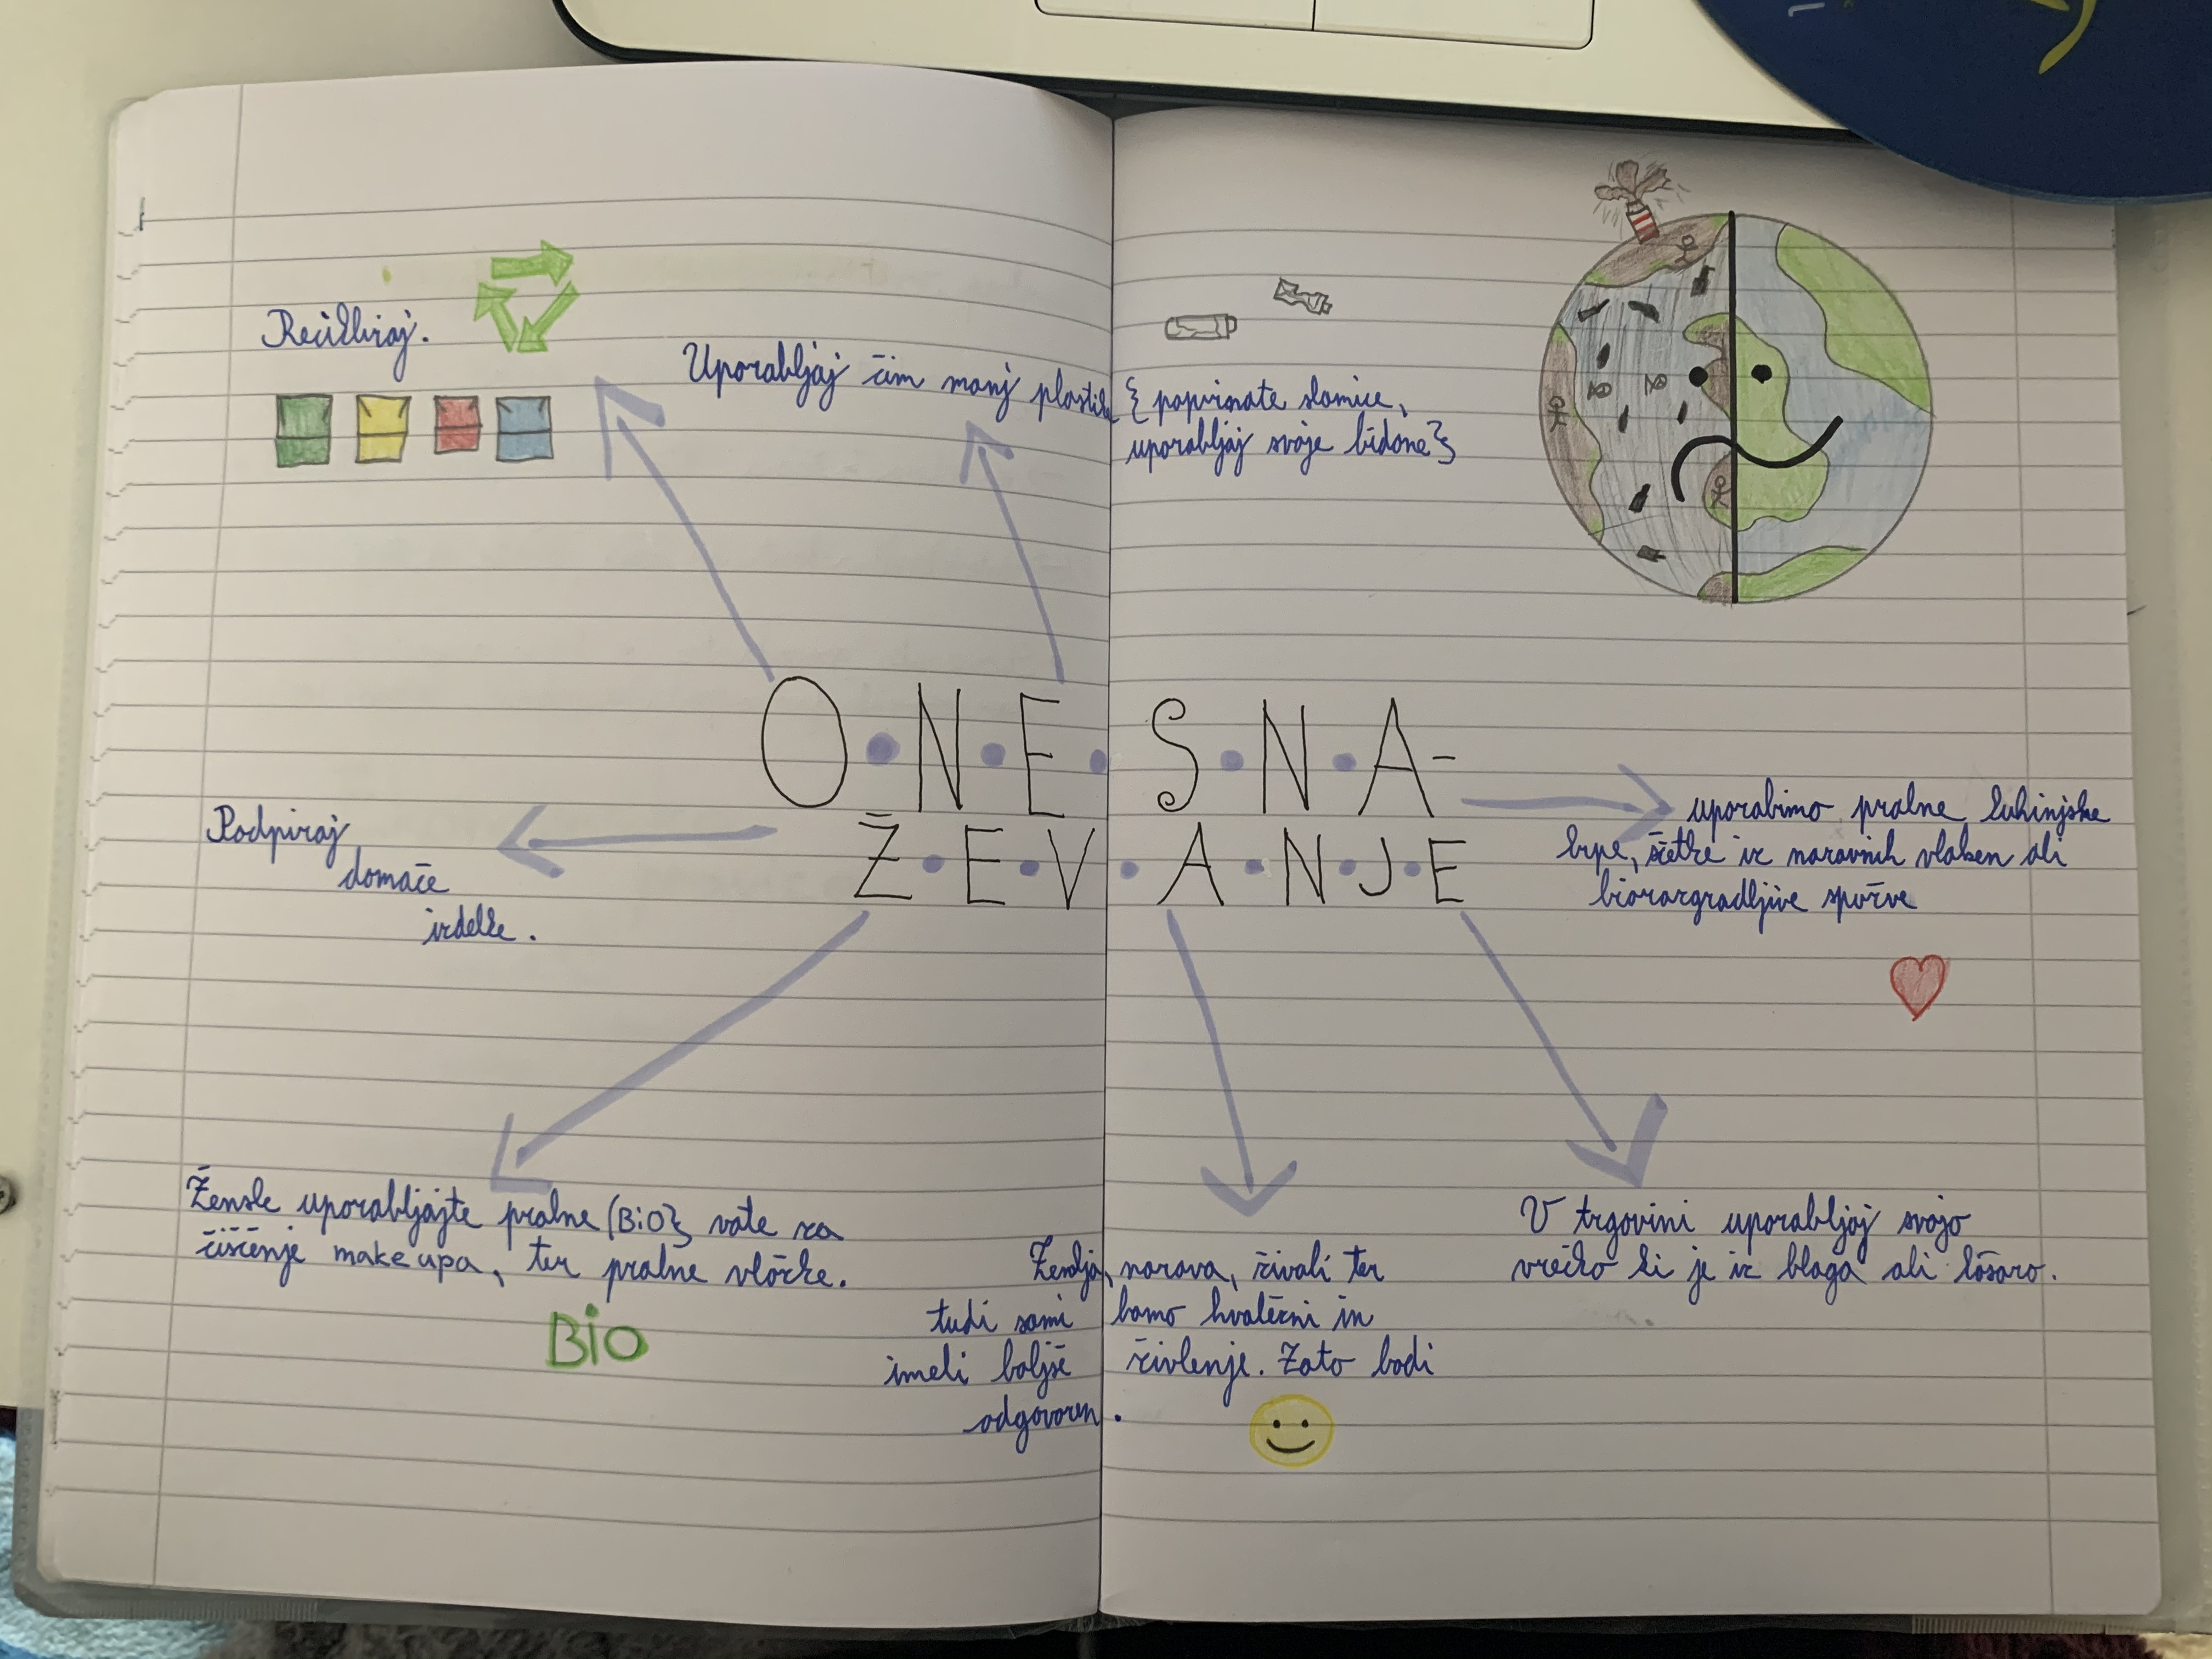 Recikliraj.
Uporabljaj čim manj plastike {papirnate slamice,
uporabljaj svoje bidone}
O•N•E•S•N•A-
Ž•E•V•A•N•J•E
uporabimo pralne kuhinjske
krpe, ščetke iz naravnih vlaken ali
biorazgradljive spužve
Podpiraj
domače
izdelke.
Ženske uporabljajte pralne (BiO} vate za
čiščenje make upa, ter pralne vložke.
BiO
Zemlja, narava, živali ter
tudi sami bomo hvaležni in
imeli boljše življenje. Zato bodi
odgovoren.
V trgovini uporabljaj svojo
vrečko ki je iz blaga ali košaro.